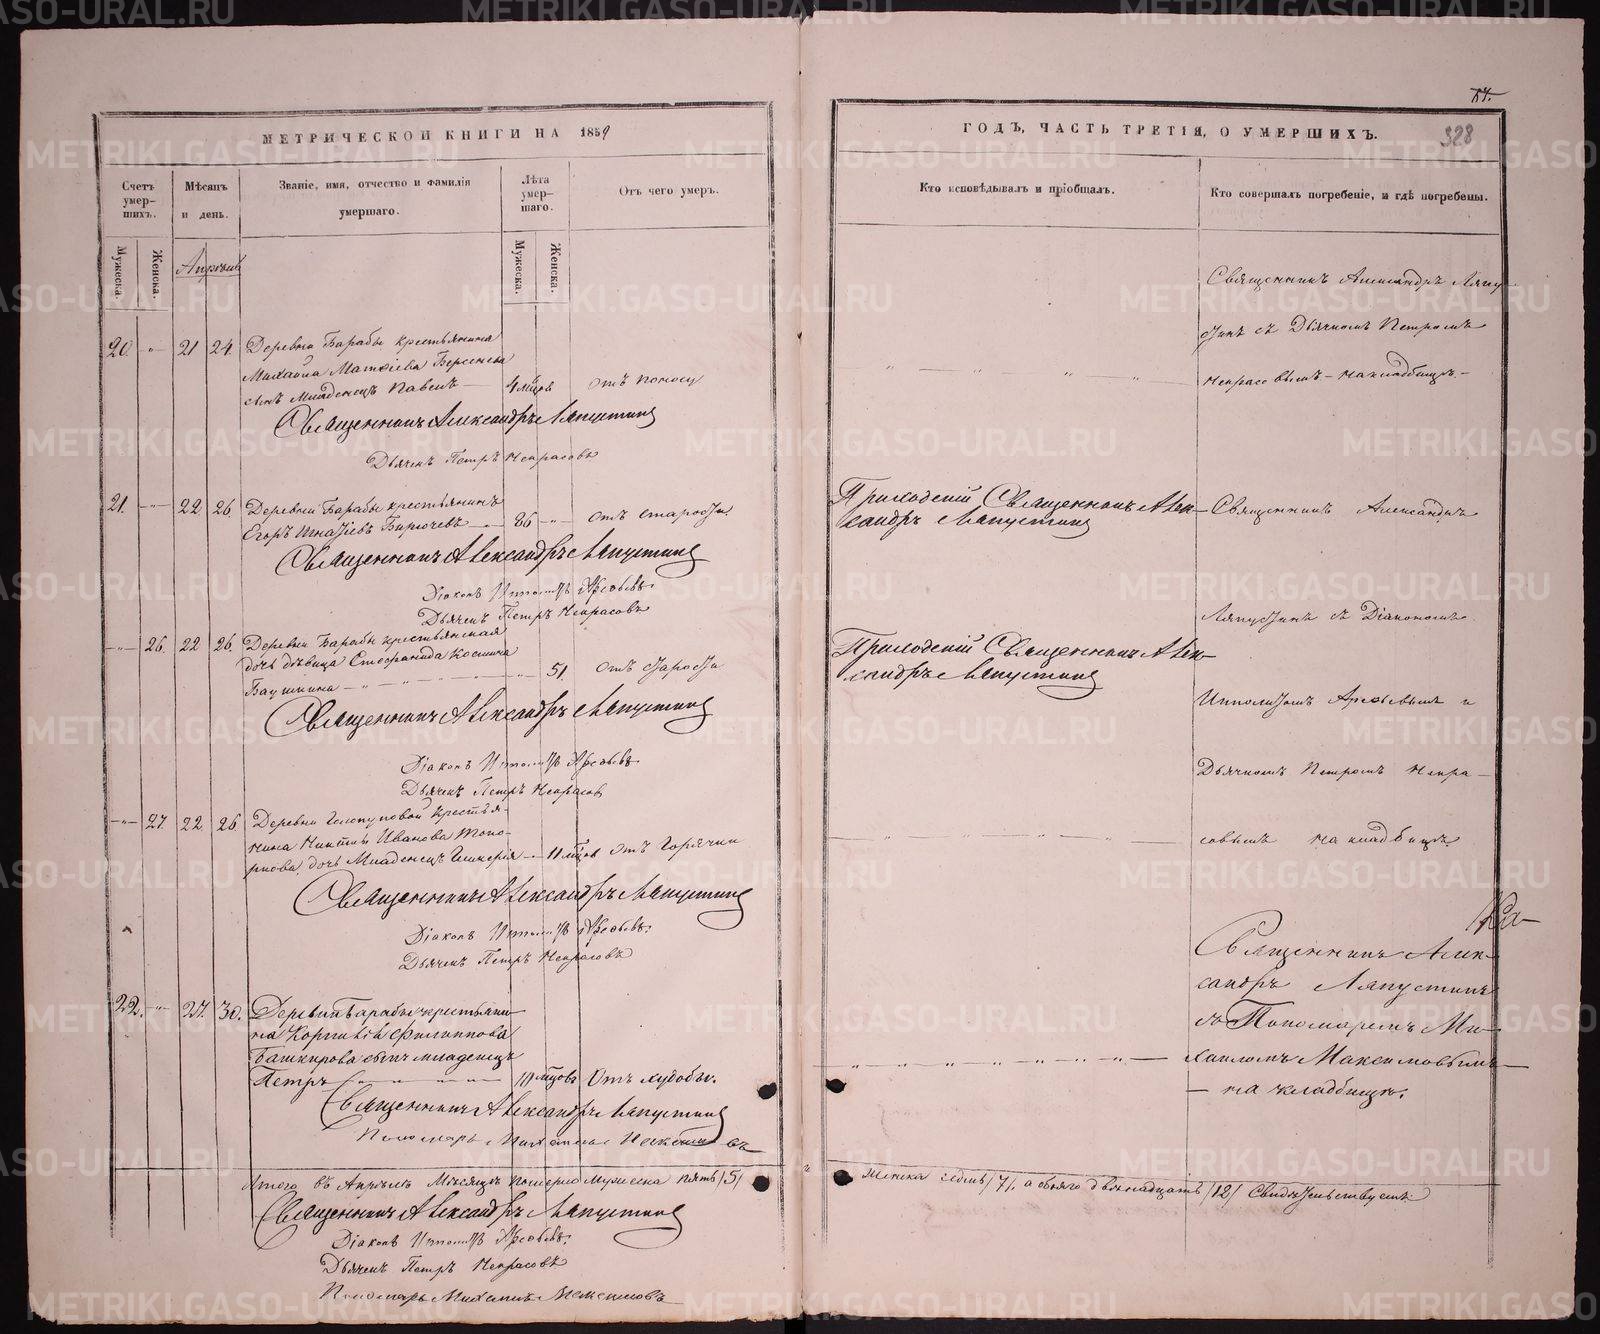 МЕТРИЧЕСКОЙ КНИГИ НА 1859
Счетъ умер-шихъ.
Мужеска.
Женска.
Мѣсяцъ и день.
Званіе, имя, отчество и фамилія умершаго.
Лѣта умер-шаго.
Мужеска.
Женска.
Отъ чего умеръ.
Апрѣль
20. -"- 21 24. Деревни Барабы крестьянина
Михаила Матѳіева Берсенева
сынъ младенецъ Павелъ — 4 мѣ. отъ поносу
Священникъ Александръ Ляпустинъ
Дьячекъ Петръ Некрасовъ
21. -"- 22 26. Деревни Барабы крестьянинъ
Егоръ Игнатіевъ Бирючевъ — 86 -"- отъ старости.
Священникъ Александръ Ляпустинъ
Діаконъ Ипполитъ
Дьячекъ Петръ Некрасовъ
-"- 26. 22 26. Деревни Барабы крестьянская
дочь дѣвица Стефанида Косьмина
Баушкина — " — 51. отъ старости.
Священникъ Александръ Ляпустинъ
Діаконъ Ипполитъ
Дьячекъ Петръ Некрасовъ
-"- 27. 22 26. Деревни крестья-
нина Никиты Иванова Топо-
ркова, дочь младенецъ Гликерія — 11 мѣсцов отъ горячки
Священникъ Александръ Ляпустинъ
Діаконъ Ипполитъ
Дьячекъ Петръ Некрасовъ
22. -"- 27. 30. Деревни Барабы крестьяни
на Корнилія Филиппова
Башкирова сынъ младенецъ
Петръ — 10 мѣсцовъ Отъ худобы.
Священникъ Александръ Ляпустинъ
Пономарь Михаилъ
Итого въ Апрѣлѣ Мѣсяцѣ померло Мужеска пять /5/
Священникъ Александръ Ляпустинъ
Діаконъ Ипполитъ
Дьячекъ Петръ Некрасовъ
Пономарь Михаилъ Максимовъ
328
ГОДЪ, ЧАСТЬ ТРЕТІЯ, О УМЕРШИХЪ.
Кто исповѣдывалъ и пріобщалъ.
Кто совершалъ погребеніе, и гдѣ погребены.
Священникъ Александръ Ляпу
стинъ съ Дьячкомъ Петромъ
Некрасовымъ — на кладбищѣ. —
Приходскій Священникъ Алек-
сандръ Ляпустинъ
Священникъ Александръ
Ляпустинъ съ Діакономъ
Приходскій Священникъ Алек-
сандръ Ляпустинъ
Ипполитомъ и
Дьячкомъ Петромъ Некра —
совымъ на кладбищѣ
Священникъ Алек-
сандръ Ляпустинъ
съ Пономаремъ Ми-
хаиломъ Максимовымъ —
— на кладбищѣ.
Женска семь /7/, а обоего двѣнадцать /12/ Свидѣтельствуемъ
METRIKI.GASO-URAL.RU